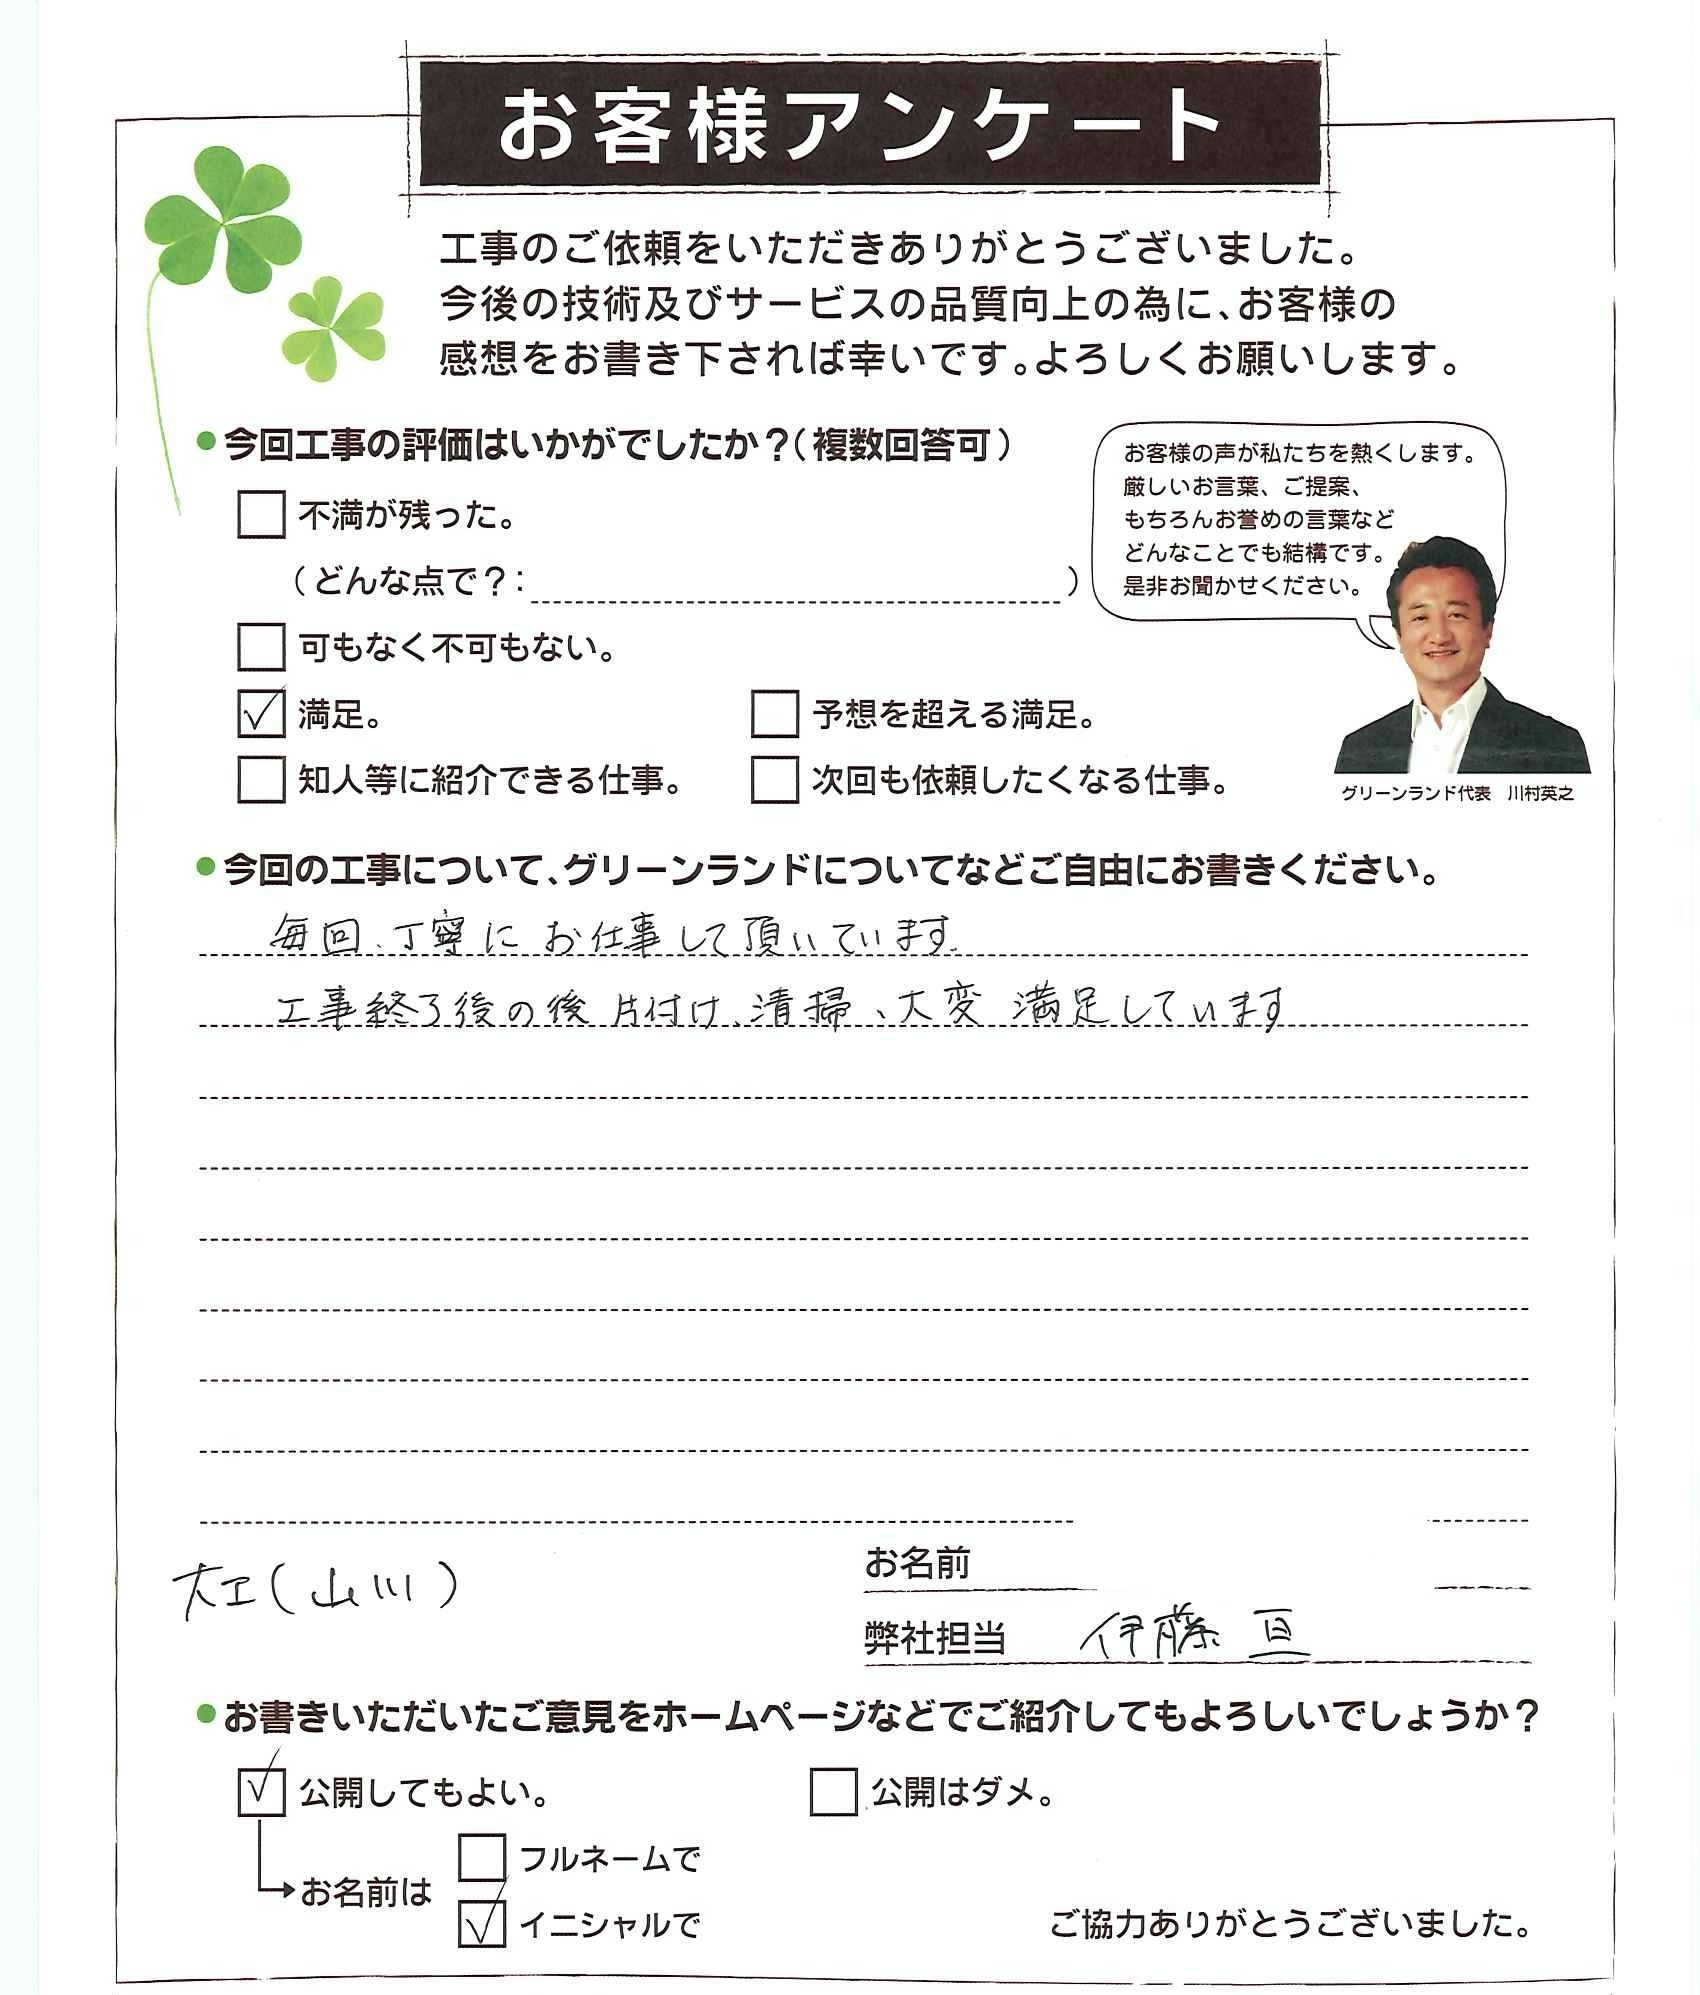 お客様アンケート
工事のご依頼をいただきありがとうございました。
今後の技術及びサービスの品質向上の為に、お客様の
感想をお書き下されば幸いです。よろしくお願いします。
●今回工事の評価はいかがでしたか？（複数回答可）
お客様の声が私たちを熱くします。
厳しいお言葉、ご提案、
もちろんお誉めの言葉など
どんなことでも結構です。
是非お聞かせください。
不満が残った。
（どんな点で？： ）
可もなく不可もない。
満足。
予想を超える満足。
知人等に紹介できる仕事。
次回も依頼したくなる仕事。
グリーンランド代表　川村英之
●今回の工事について、グリーンランドについてなどご自由にお書きください。
毎回、丁寧にお仕事して頂いています。
工事終了後の後片付け、清掃、大変満足しています
お名前
大工（山川）
弊社担当 伊藤 亘
●お書きいただいたご意見をホームページなどでご紹介してもよろしいでしょうか？
公開してもよい。
公開はダメ。
フルネームで
お名前は
イニシャルで
ご協力ありがとうございました。